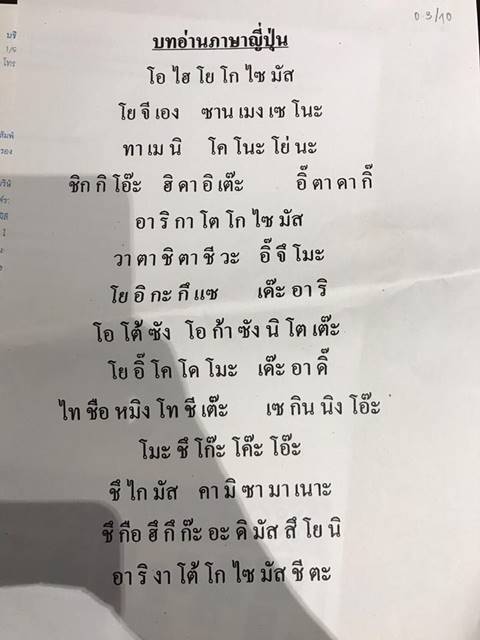 03/10
บทอ่านภาษาญี่ปุ่น
โอ ไฮ โย โก ไซ มัส
โย จี เอง ซาน เมง เซ โนะ
ทา เม นิ โค โนะ โย่ นะ
ชิก กิ โอ๊ะ ฮิ คา อิ เต๊ะ อิ๊ ตา คา กิ๊
อา ริ กา โต โก ไซ มัส
วา ตา ชิ ตา ชี วะ อิ๊ จึ โมะ
โย อิ กะ กึ แซ เด๊ะ อา ริ
โอ โต้ ซัง โอ ก้า ซัง นิ โต เต๊ะ
โย อิ๊ โค โด โมะ เด๊ะ อา ดิ๊
ไท ชือ หมิง โท ชี เต๊ะ เซ กิน นิง โอ๊ะ
โมะ ชึ โก๊ะ โค๊ะ โอ๊ะ
ชึ ไก มัส คา มิ ซา มา เนาะ
ชึ กือ ฮึ กึ ก๊ะ อะ ดิ มัส สึ โย นิ
อา ริ งา โต้ โก ไซ มัส ชี ตะ
บริ
โทร
สัมพั
รอง